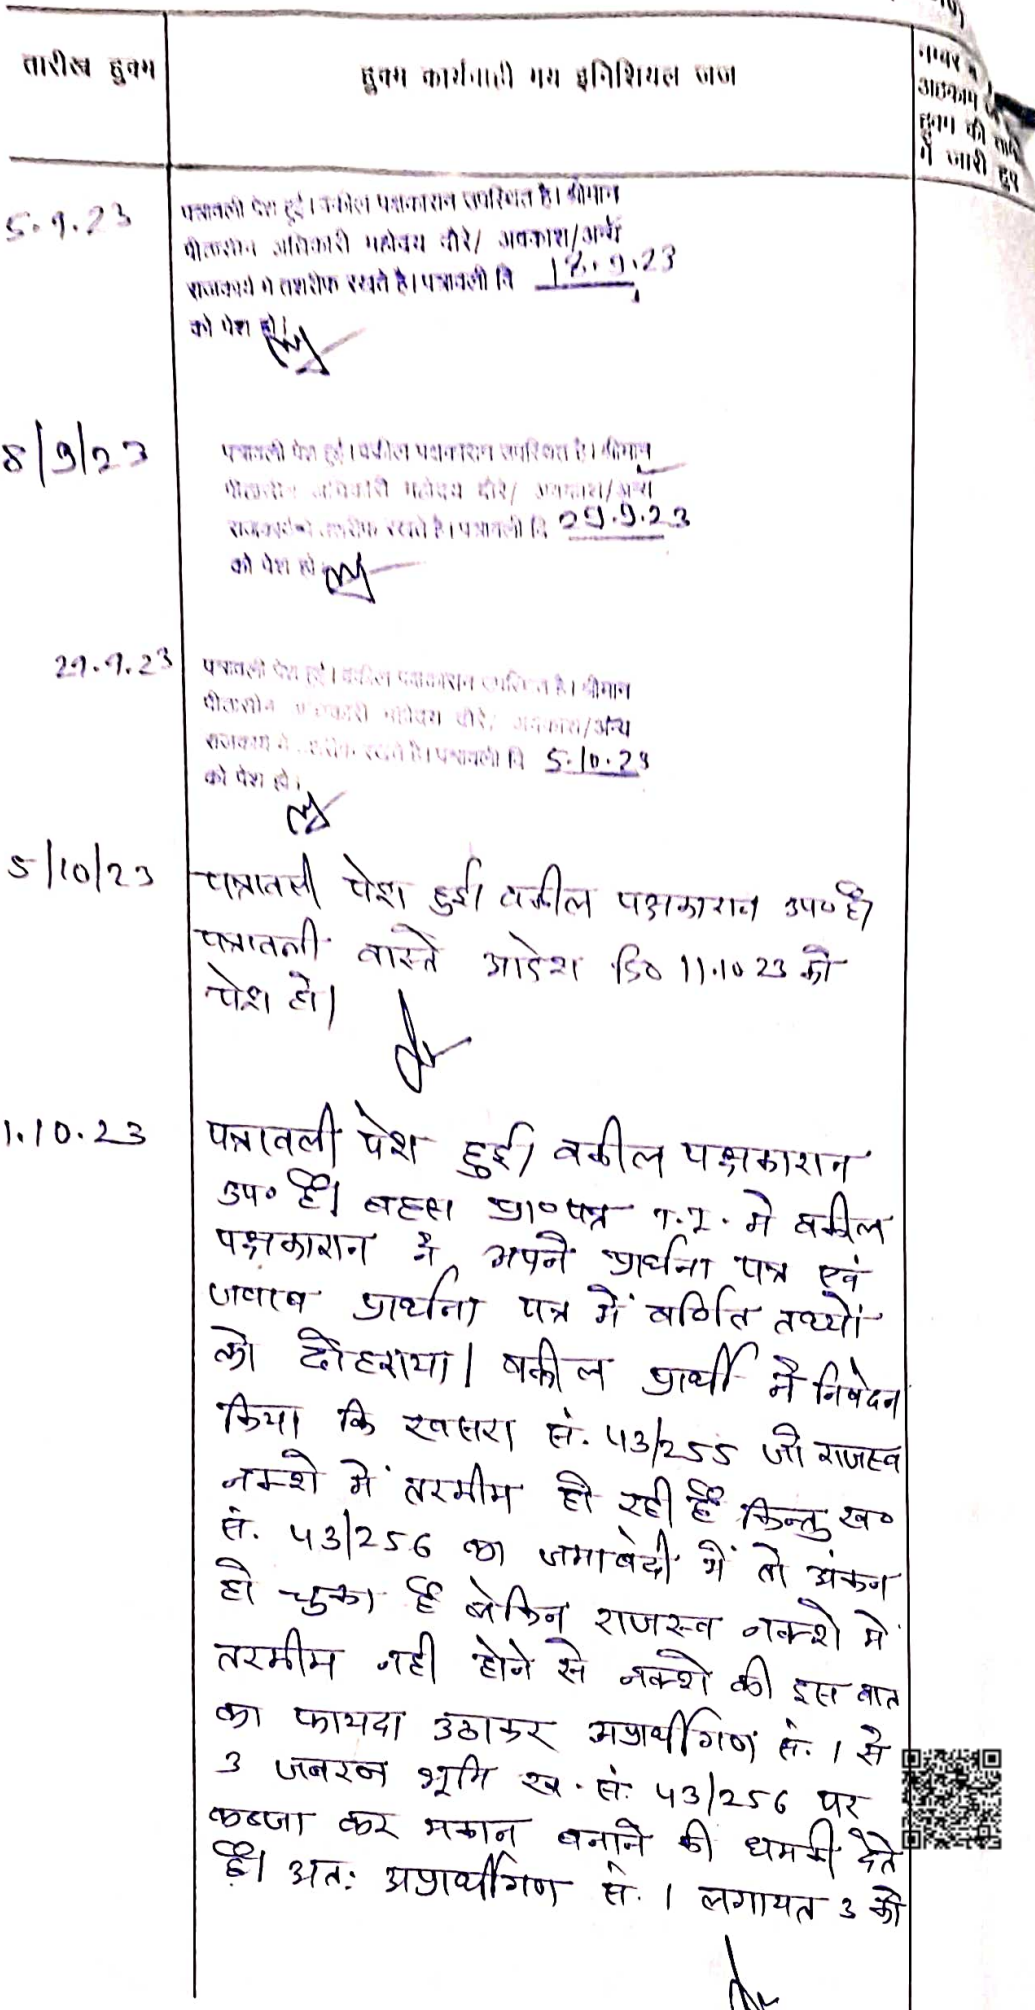 तारीख हुक्म
हुक्म कार्यवाही मय इनिशियल जज
नम्बर व
अहकाम
हुक्म की
में जारी हुए
5.9.23
पत्रावली पेश हुई। वकील पक्षकारान उपस्थित है। श्रीमान
पीठासीन अधिकारी महोदय दौरे/ अवकाश/अन्य
राजकार्य मे तशरीफ रखते है। पत्रावली दि
को पेश हो।
8/9/23
पत्रावली पेश हुई। वकील पक्षकारान उपस्थित है। श्रीमान
पीठासीन अधिकारी महोदय दौरे/ अवकाश/अन्य
राजकार्य मे तशरीफ रखते है। पत्रावली दि 29.9.23
को पेश हो
29.9.23
पत्रावली पेश हुई। वकील पक्षकारान उपस्थित है। श्रीमान
पीठासीन अधिकारी महोदय दौरे/ अवकाश/अन्य
राजकार्य मे तशरीफ रखते है। पत्रावली दि 5.10.23
को पेश हो।
5/10/23
पत्रावली पेश हुई। वकील पक्षकारान उप० है।
पत्रावली वास्ते आदेश दि० 11.10.23 को
पेश हो।
1.10.23
पत्रावली पेश हुई। वकील पक्षकारान
उप० है। बहस प्रा०पत्र में वकील
पक्षकारान ने अपने प्रार्थना पत्र एवं
जवाब प्रार्थना पत्र में वर्णित तथ्यों
को दोहराया। वकील प्रार्थी ने निवेदन
किया कि खसरा सं. 43/255 जो राजस्व
नक्शे में तरमीम हो रही है किन्तु ख०
सं. 43/256 का जमाबंदी में तो अंकन
हो चुका है लेकिन राजस्व नक्शे में
तरमीम नही होने से नक्शे की इस बात
का फायदा उठाकर अप्रार्थीगण सं. 1 से
3 जबरन भूमि ख. सं. 43/256 पर
कब्जा कर मकान बनाने की धमकी देते
है। अतः अप्रार्थीगण सं. 1 लगायत 3 को